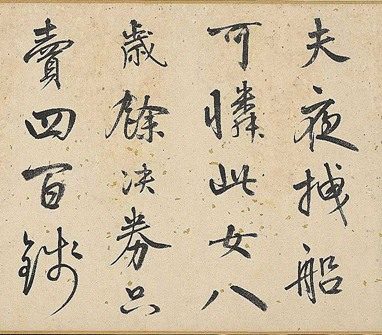 夫夜拽船
可憐此女八
歳餘决券只
賣四百錢